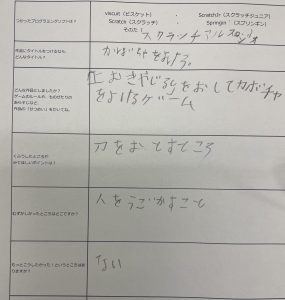 つかったプログラミングソフトは？
Viscuit（ビスケット） ・ ScratchJr（スクラッチジュニア）
Scratch（スクラッチ） ・ Springin'（スプリンギン）
その他（
スクラッチ
作品にタイトルをつけるなら、
どんなタイトル？
かぼちゃをよけろ
どんな作品にしましたか？
ゲームのルールや、ものがたりの
あらすじなど、
作品の「せつめい」をかいてね。
上むきやじるしをおしてカボチャ
をよけるゲーム
くふうしたところや
みてほしいポイントは？
刀をおとすところ
むずかしかったところはどこですか？
人をうごかすこと
もっとこうしたかった！というところはあ
りますか？
ない